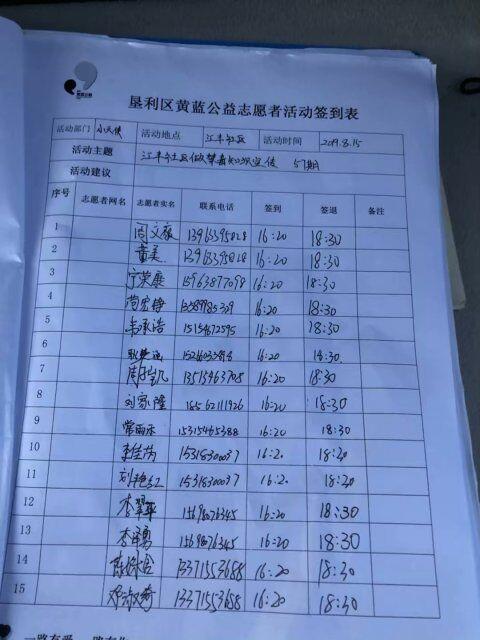 垦利区黄蓝公益志愿者活动签到表
活动部门 小天使 活动地点 江丰社区 活动时间 2019.8.15
活动主题 江丰社区做禁毒知识宣传 57期
活动建议
序号 志愿者网名 志愿者实名 联系电话 签到 签退 备注
1 周文豪 13963395028 16:20 18:30
2 董美 13963395028 16:20 18:30
3 宁荣康 15963877098 16:20 18:30
4 尚宏铮 16:20 18:30
5 韦承浩 15154672595 16:20 18:30
6 16:20 18:30
7 13515463708 16:20 18:30
8 刘家隆 18562111926 16:20 18:30
9 常雨乐 15315465388 16:20 18:30
10 李佳芮 15318300037 16:20 18:20
11 刘艳红 15318300037 16:20 18:20
12 李翠菲 15698076345 16:20 18:30
13 15698076345 16:20 18:30
14 13371553688 16:20 18:30
15 邓淑秀 13371553688 16:20 18:30